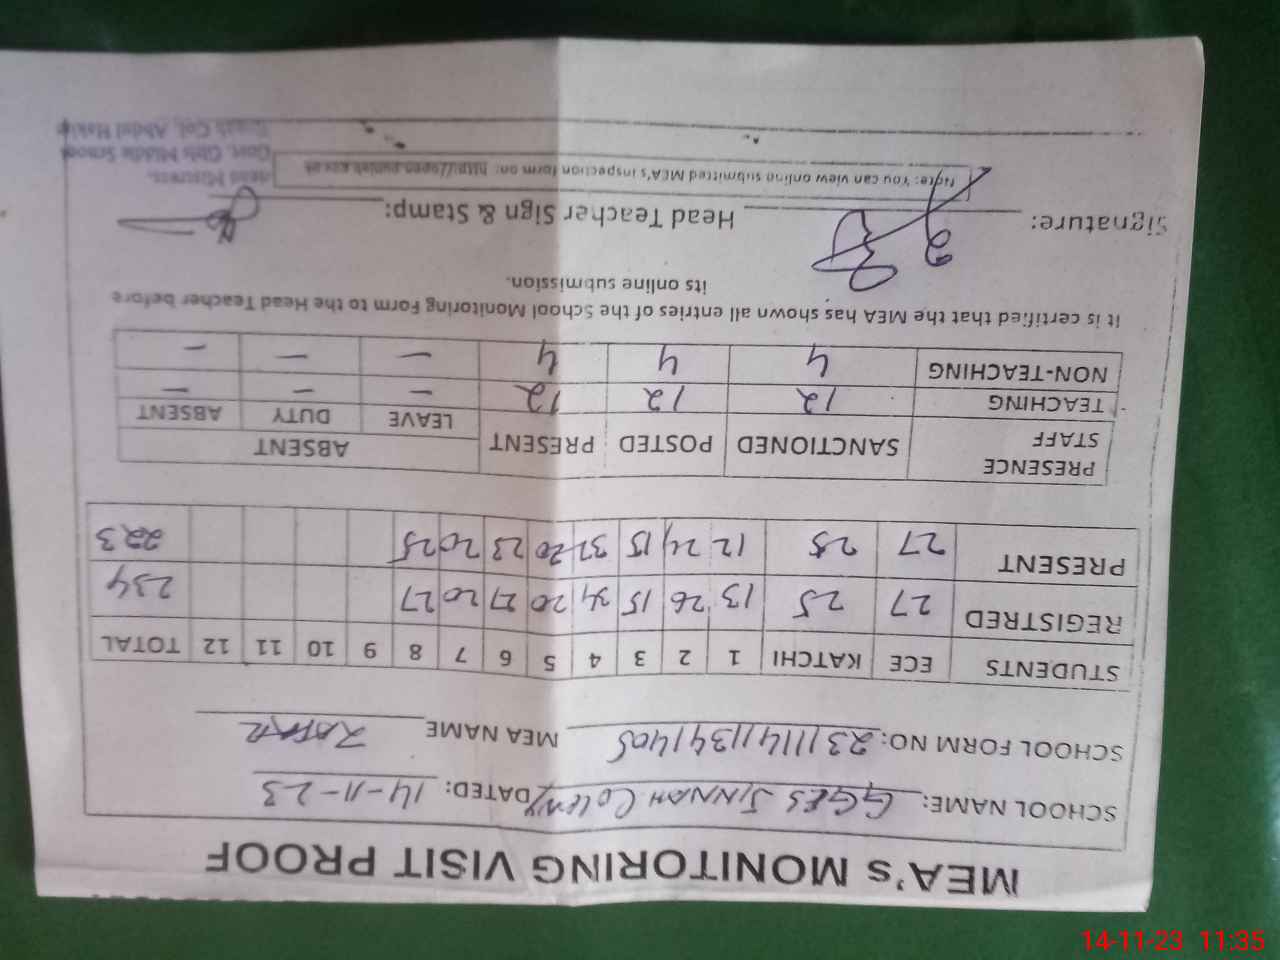 MEA's MONITORING VISIT PROOF
SCHOOL NAME: GGES JINNAH Colony DATED: 14-11-23
SCHOOL FORM NO: 23111411341405 MEA NAME ZAFAR
STUDENTS ECE KATCHI 1 2 3 4 5 6 7 8 9 10 11 12 TOTAL
REGISTRED 27 25 13 26 15 34 20 27 20 27 234
PRESENT 27 25 12 24 15 32 20 23 20 25 223
PRESENCE STAFF SANCTIONED POSTED PRESENT ABSENT
LEAVE DUTY ABSENT
TEACHING 12 12 12 – – –
NON-TEACHING 4 4 4 – – –
It is certified that the MEA has shown all entries of the School Monitoring Form to the Head Teacher before
its online submission.
Signature: Head Teacher Sign & Stamp:
Note: You can view online submitted MEA's inspection form on: http://open.punjab.gov.pk
Head Mistress,
Govt. Girls Middle School
Jinnah Col. Abdul Hakim
14-11-23 11:35